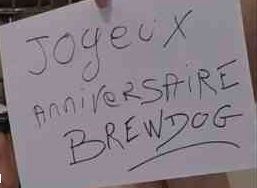 JOYEUX
ANNIVERSAIRE
BREWDOG